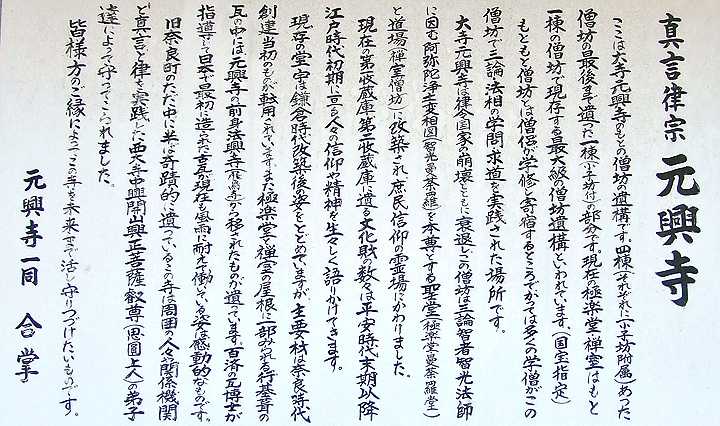 真言律宗 元興寺
ここは大寺元興寺のもとの僧坊の遺構です。四棟(それぞれに(小子坊附属)あった
僧坊の最後まで遺った一棟(小子坊付)の部分です。現在の極楽堂・禅室はもと
一棟の僧坊で現存する最大級の僧坊遺構といわれています。(国宝指定)
もともと僧坊とは僧侶が学修と寄宿するところでかつては多くの学僧がこの
僧坊で三論・法相の学問・求道を実践された場所です。
大寺元興寺は律令国家の崩壊とともに衰退し、この僧坊は三論智者智光法師
に因む阿弥陀浄土変相図(智光曼荼羅)を本尊とする聖堂(極楽堂・曼荼羅堂)
と道場(禅室・僧坊)に改築され、庶民信仰の霊場にかわりました。
現在の第一收蔵庫・第二收蔵庫に遺る文化財の数々は平安時代末期以降
江戸時代初期に亘る人々の信仰や精神を生々しく語りかけてきます。
現存の堂宇は鎌倉時代改築後の姿をとどめていますが、主要材は奈良時代
創建当初のものが転用されています。また極楽堂と禅室の屋根に一部みられる行基葺の
瓦の中には元興寺の前身法興寺(飛鳥寺)から移されたものが遺っています。百済の瓦博士が
指導して日本で最初に造られた古瓦が現在も風雨に耐えて働いている姿は感動的なものです。
旧奈良町のただ中に半ば奇蹟的に遺っているこの寺は周囲の人々・関係機関
と真言と律を実践した西大寺中興開山興正菩薩叡尊(思圓上人)の弟子
達によって守ってこられました。
皆様方のご縁によって、この寺を未来まで活し守りつづけたいものです。
元興寺一同 合掌